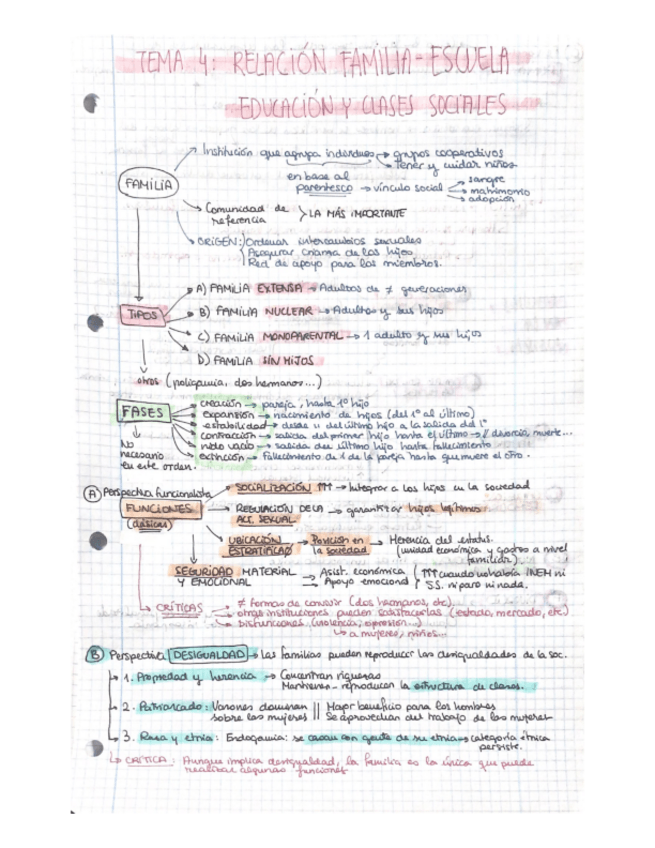 TEMA 4: RELACIÓN FAMILIA-ESCUELA
EDUCACIÓN Y CLASES SOCIALES
FAMILIA
→ Institución que agrupa individuos → grupos cooperativos
→ Tener y cuidar niños
en base al
parentesco → vínculo social → sangre
→ matrimonio
→ adopción
→ Comunidad de referencia > LA MÁS IMPORTANTE
→ ORIGEN: Ordenar intercambios sexuales
Asegurar crianza de los hijos
Red de apoyo para los miembros.
TIPOS
→ A) FAMILIA EXTENSA → Adultos de ≠ generaciones
→ B) FAMILIA NUCLEAR → Adultos y sus hijos
→ C) FAMILIA MONOPARENTAL → 1 adulto y sus hijos
→ D) FAMILIA SIN HIJOS
otros (poligamia, dos hermanos...)
FASES
No necesario en este orden.
creación → pareja, hasta 1º hijo
expansión → nacimiento de hijos (del 1º al último)
estabilidad → desde 11 del último hijo a la salida del 1º
contracción → salida del primer hijo hasta el último → // divorcio, muerte...
nido vacío → salida del último hijo hasta fallecimiento
extinción → fallecimiento de 1 de la pareja hasta que muere el otro.
A Perspectiva funcionalista
FUNCIONES
(clásicas)
→ SOCIALIZACIÓN ↑↑↑ → Integrar a los hijos en la sociedad
→ REGULACIÓN DE LA ACT. SEXUAL → garantizar hijos legítimos.
→ UBICACIÓN ESTRATIFICAO → Posición en la sociedad → Herencia del estatus.
(unidad económica y gastos a nivel familiar).
SEGURIDAD MATERIAL Y EMOCIONAL → Asist. económica
→ Apoyo emocional
↑↑↑ cuando no había INEM ni
SS. ni paro ni nada.
→ CRÍTICAS → ≠ formas de convivir (dos hermanos, etc)
→ otras instituciones pueden satisfacerlas (estado, mercado, etc)
→ Disfunciones (violencia, opresión...)
↳ a mujeres, niños...
B Perspectiva DESIGUALDAD → Las familias pueden reproducir las desigualdades de la soc.
→ 1. Propiedad y herencia → Concentran riquezas
Mantienen - reproducen la estructura de clases.
→ 2. Patriarcado: Varones dominan sobre las mujeres || Mayor beneficio para los hombres
Se aprovechan del trabajo de las mujeres
→ 3. Raza y etnia: Endogamia: se casan con gente de su etnia → categoría étnica persiste.
↳ CRÍTICA: Aunque implica desigualdad, la familia es la única que puede
realizar algunas funciones